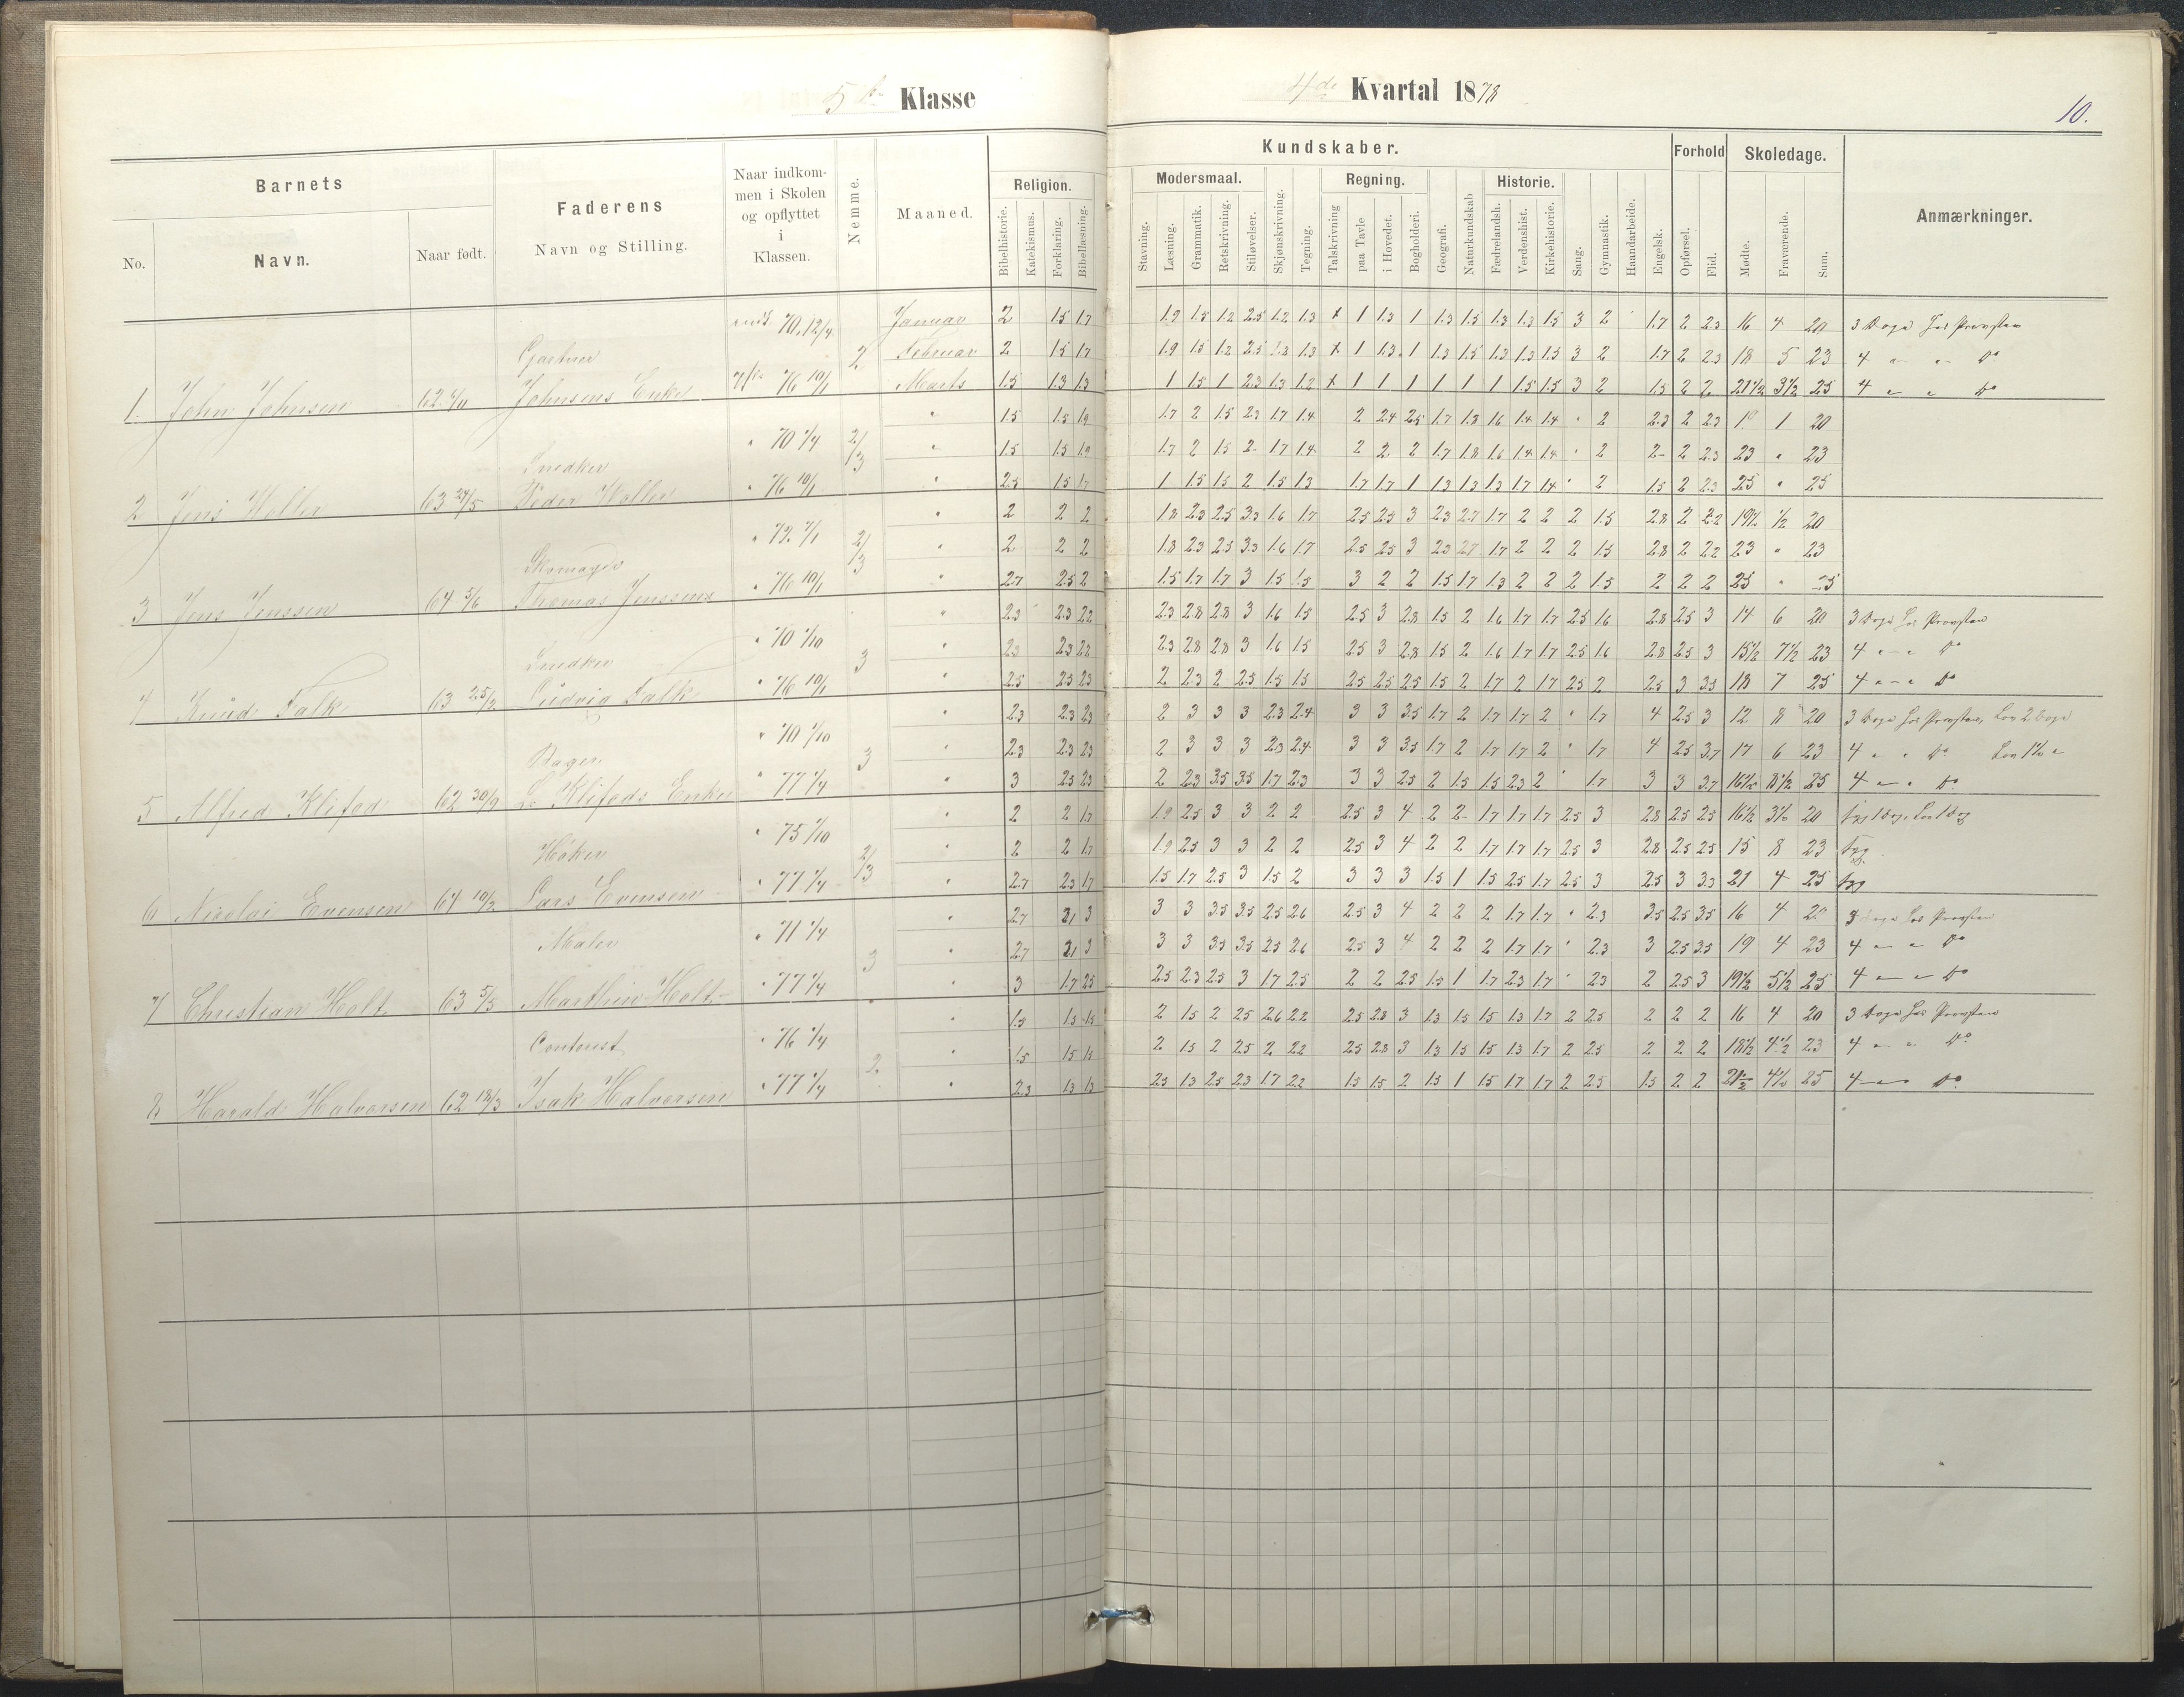 5te Klasse
4de Kvartal 1878
10.
Barnets
No.
Navn.
Naar født.
Faderens
Navn og Stilling.
Naar indkom-
men i Skolen
og opflyttet
i
Klassen.
Nemme.
Maaned.
Religion.
Bibelhistorie.
Katekismus.
Forklaring.
Bibellæsning.
Kundskaber.
Stavning.
Modersmaal.
Læsning.
Grammatik.
Retskrivning.
Stiløvelser.
Skjønskrivning.
Tegning.
Regning.
Talskrivning
paa Tavle
i Hovedet.
Bogholderi.
Geografi.
Naturkundskab
Historie.
Fædrelandsh.
Verdenshist.
Kirkehistorie.
Sang.
Gymnastik.
Haandarbeide.
Engelsk.
Forhold
Opførsel.
Flid.
Skoledage.
Mødte.
Fraværende.
Sum.
Anmærkninger.
70. 12/4 Januar 2 1.5 1.7 1.9 1.5 1.2 2.5 1.2 1.3 x 1 1.3 1 1.3 1.5 1.3 1.3 1.5 3 2 1.7 2 2.3 16 4 20 3 Dage hos Provsten
Gartner 2 Februar 2 1.5 1.7 1.9 1.5 1.2 2.5 1.2 1.3 x 1 1.3 1 1.3 1.5 1.3 1.3 1.5 3 2 1.7 2 2.3 18 5 23 4 " " Do
1. John Johnsen Johnsens Enke 76 10/1 Marts 1.5 1.3 1.3 1 1.5 1 2.3 1.3 1.2 x 1 1 1 1 1 1 1.5 1.5 3 2 1.5 2 2 21 1/2 3 1/2 25 4 " " Do
" 1.5 1.5 1.9 1.7 2 1.5 2.3 1.7 1.4 2 2.4 2.5 1.7 1.8 1.6 1.4 1.4 " 2 2.3 2 2.3 19 1 20
Snedker " 70 1/4 2/3 " 1.5 1.5 1.9 1.7 2 1.5 2 1.7 1.4 2 2 2 1.7 1.8 1.6 1.4 1.4 " 2 2 2 2.3 23 " 23
2 Jens Holler 63 27/5 Peder Holler " 76 10/1 " 2.5 1.5 1.7 1 1.5 1.5 2 1.5 1.3 1.7 1.7 1 1.3 1.3 1.3 1.7 1.4 " 2 1.5 2 2.3 25 " 25
" 2 2 2 1.8 2.3 2.5 3.3 1.6 1.7 2.5 2.5 3 2.3 2.7 1.7 2 2 2 1.5 2.8 2 2.2 19 1/2 1/2 20
Skomager " 72. 7/1 2/3 " 2 2 2 1.8 2.3 2.5 3.3 1.6 1.7 2.5 2.5 3 2.3 2.7 1.7 2 2 2 1.5 2.8 2 2.2 23 " 23
3 Jens Jenssen 64 5/6 Thomas Jenssens " 76 10/1 " 2.7 2.5 2 1.5 1.7 1.7 3 1.5 1.5 3 2 2 1.5 1.7 1.3 2 2 2 1.5 2 2 2 25 " 25
" 2.3 2.3 2.2 2.3 2.8 2.8 3 1.6 1.5 2.5 3 2.8 1.5 2 1.6 1.7 1.7 2.5 1.6 2.8 2.5 3 14 6 20 3 Dage hos Provsten
Snedker " 70 1/10 3 " 2.3 2.3 2.2 2.3 2.8 2.8 3 1.6 1.5 2.5 3 2.8 1.5 2 1.6 1.7 1.7 2.5 1.6 2.8 2.5 3 15 1/2 7 1/2 23 4 " " Do
4 Knud Falk 63 25/2 Ludvig Falk " 76 10/1 " 2.5 2.5 2.3 2 2.3 2 2.5 1.5 1.5 2.5 2.5 2.5 1.5 2 1.7 2 1.7 2.5 2 2.5 3 3.3 18 7 25 4 " " Do
" 2.3 2.3 2.3 2 3 3 3 2.3 2.4 3 3 3.5 1.7 2 1.7 1.7 2 " 1.7 4 2.5 3 12 8 20 3 Dage hos Provsten, Lov 2 Dage
Bager " 70 1/10 3 " 2.3 2.3 2.3 2 3 3 3 2.3 2.4 3 3 3.5 1.7 2 1.7 1.7 2 " 1.7 4 2.5 3.7 17 6 23 4 " " Do Lov 1 1/2 "
5 Alfred Klifod 62 30/9 Klifods Enke " 77 1/4 " 3 2.5 2.3 2 2.3 3.5 3.5 1.7 2.3 3 3 2.5 2 1.5 1.5 2.3 2 " 1.7 3 3 3.7 16 1/2 8 1/2 25 4 " " Do
" 2 2 1.7 1.9 2.5 3 3 2 2 2.5 3 4 2 2 1.7 1.7 1.7 2.5 3 2.8 2.5 2.5 16 1/2 3 1/2 20 syg 1 Dag, Lov 1 Dag
Høker " 75 1/10 2/3 " 2 2 1.7 1.9 2.5 3 3 2 2 2.5 3 4 2 2 1.7 1.7 1.7 2.5 3 2.8 2.5 2.5 15 8 23 Syg
6 Nicolai Evensen 64 10/2 Lars Evensen " 77 1/4 " 2.7 2.3 1.7 1.5 1.7 2.5 3 1.5 2 3 3 3 1.5 1 1.5 2.5 1.7 2.5 3 2.5 3 3.3 21 4 25 Syg
" 2.7 2.1 3 3 3 3.5 3.5 2.5 2.6 2.5 3 4 2 2 2 1.7 1.7 " 2.3 3.5 2.5 3.5 16 4 20 3 Dage hos Provsten
Maler " 71 1/4 3 " 2.7 2.1 3 3 3 3.5 3.5 2.5 2.6 2.5 3 4 2 2 2 1.7 1.7 " 2.3 3 2.5 3.5 19 4 23 4 " " Do
7 Christian Holt 63 5/5 Marthin Holt " 77 1/4 " 3 1.7 2.5 2.5 2.3 2.5 3 1.7 2.5 2 2 2.5 1.5 1 1.7 2.3 1.7 " 2.3 2 2.5 3 19 1/2 5 1/2 25 4 " " Do
" 1.5 1.5 1.5 2 1.5 2 2.5 2.6 2.2 2.5 2.8 3 1.3 1.5 1.5 1.3 1.7 2 2.5 2 2 2 16 4 20 3 Dage hos Provsten
Contorist " 76 1/4 2 " 1.5 1.5 1.5 2 1.5 2 2.5 2 2.2 2.5 2.8 3 1.3 1.5 1.5 1.3 1.7 2 2.5 2 2 2 18 1/2 4 1/2 23 4 " " Do
8 Harald Halvorsen 62 18/3 Isak Halvorsen " 77 1/4 " 2.3 1.3 1.3 2.3 1.3 2.5 2.3 1.7 2.2 1.5 1.5 2 1.5 1 1.5 1.7 1.7 2 2.5 1.5 2 2 21 1/2 4 1/2 25 4 " " Do